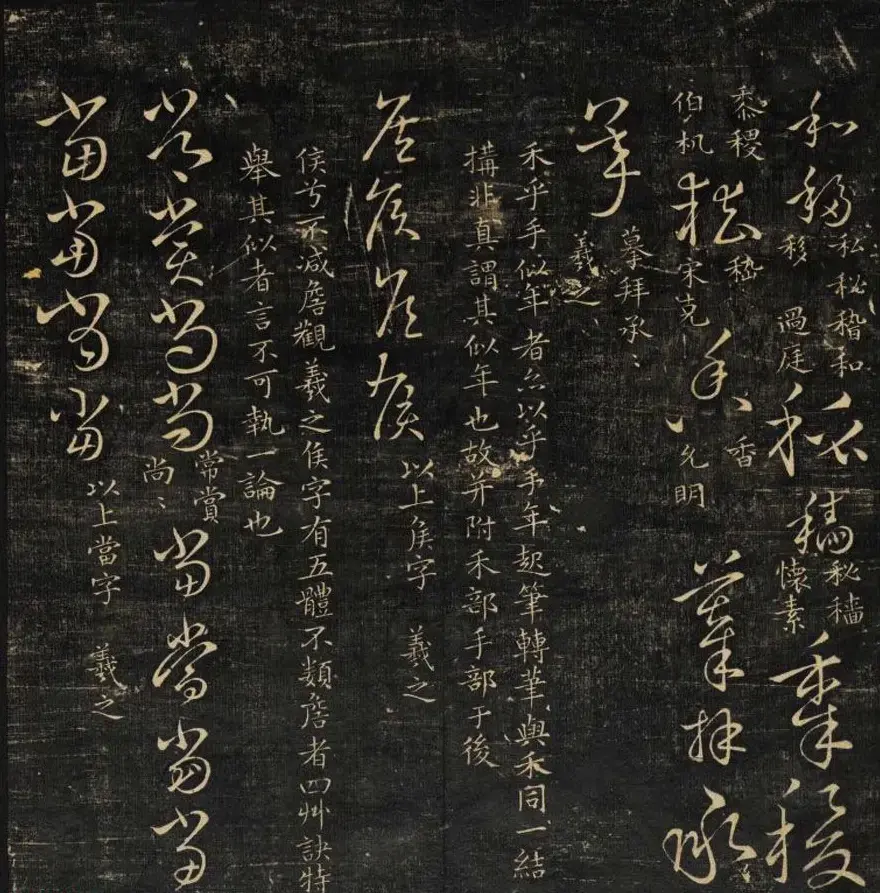 和移 私秘稽和
移 過庭 秘穡 秘穡
懷素 黍稷
黍稷
伯机 嵇 嵇
宋克 香 香
允明 摹拜承
承 摹拜承〻
羲之
禾乎手似年者亦以乎手年起筆轉筆與禾同一結
搆非真謂其似年也故并附禾部手部于後
侯侯侯侯 以上侯字 羲之
侯兮不减詹觀羲之侯字有五體不類詹者四艸訣特
舉其似者言不可執一論也
常賞尚尚 常賞
尚〻 當當當當
當當當當 以上當字 羲之